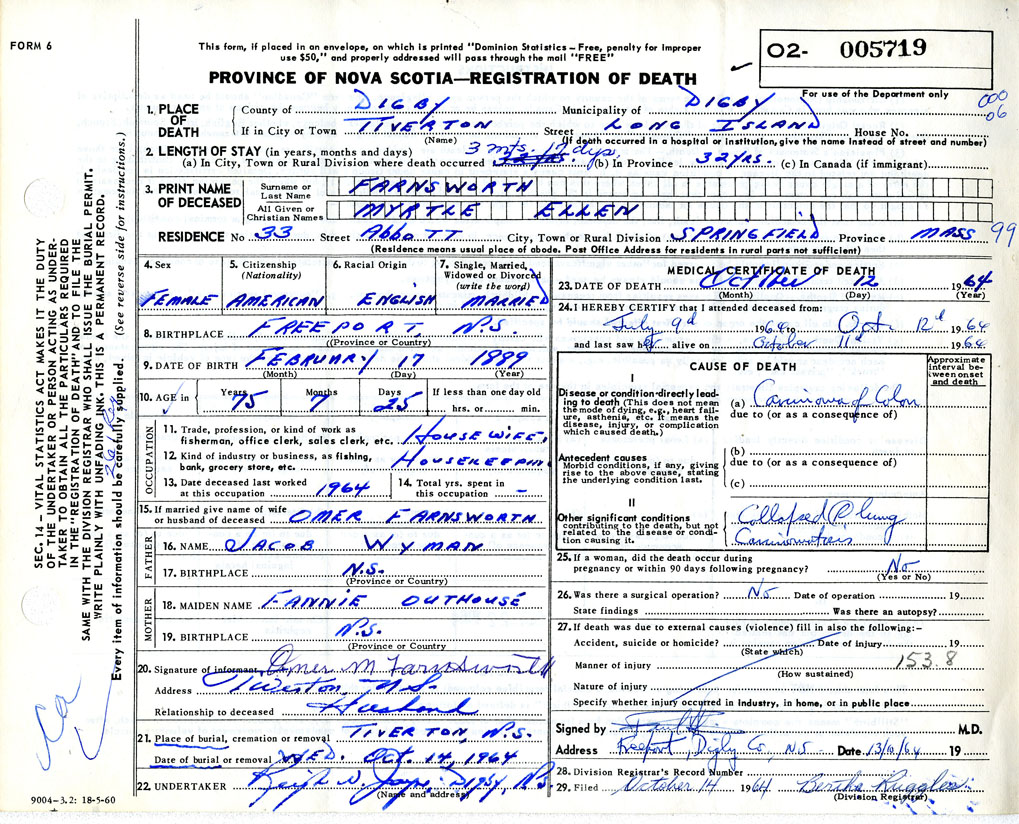 FORM 6
This form, if placed in an envelope, on which is printed "Dominion Statistics – Free, penalty for improper
use $50," and properly addressed will pass through the mail "FREE"
PROVINCE OF NOVA SCOTIA—REGISTRATION OF DEATH
O2- 005719
For use of the Department only
000
06
1. PLACE OF DEATH County of DIGBY Municipality of DIGBY
If in City or Town TIVERTON Street LONG ISLAND House No.
(Name) (If death occurred in a hospital or institution, give the name instead of street and number)
2. LENGTH OF STAY (in years, months and days) 3 mts. 17 dys.
(a) In City, Town or Rural Division where death occurred (b) In Province 32 YRS. (c) In Canada (if immigrant)
3. PRINT NAME OF DECEASED Surname or Last Name FARNSWORTH
All Given or Christian Names MYRTLE ELLEN
RESIDENCE No 33 Street Abbott City, Town or Rural Division SPRINGFIELD Province MASS 99
(Residence means usual place of abode. Post Office Address for residents in rural parts not sufficient)
4. Sex FEMALE
5. Citizenship (Nationality) AMERICAN
6. Racial Origin ENGLISH
7. Single, Married, Widowed or Divorced (write the word) MARRIED
8. BIRTHPLACE FREEPORT N.S.
(Province or Country)
9. DATE OF BIRTH FEBRUARY 17 1889
(Month) (Day) (Year)
10. AGE in Years 75 Months 7 Days 25 If less than one day old
hrs. or min.
OCCUPATION
11. Trade, profession, or kind of work as
fisherman, office clerk, sales clerk, etc. HOUSEWIFE.
12. Kind of industry or business, as fishing,
bank, grocery store, etc. HOUSEKEEPING
13. Date deceased last worked
at this occupation 1964
14. Total yrs. spent in
this occupation –
15. If married give name of wife
or husband of deceased OMER FARNSWORTH
FATHER
16. NAME JACOB WYMAN
17. BIRTHPLACE N.S.
(Province or Country)
MOTHER
18. MAIDEN NAME FANNIE OUTHOUSE
19. BIRTHPLACE N.S.
(Province or Country)
20. Signature of informant Omer M Farnsworth
Address Tiverton, N.S.
Relationship to deceased Husband
21. Place of burial, cremation or removal TIVERTON, N.S.
Date of burial or removal WED. Oct. 14, 1964
22. UNDERTAKER
(Name and address)
9004–3.2: 18-5-60
MEDICAL CERTIFICATE OF DEATH
23. DATE OF DEATH October 12 1964
(Month) (Day) (Year)
24. I HEREBY CERTIFY that I attended deceased from:
July 9th 1964 to Oct. 12th 1964
and last saw her alive on October 11th 1964
CAUSE OF DEATH
Approximate interval between onset and death
I
Disease or condition directly leading to death (This does not mean
the mode of dying, e.g., heart failure, asthenia, etc. It means the
disease, injury, or complication
which caused death.)
(a) Carcinoma of Colon
due to (or as a consequence of)
Antecedent causes
Morbid conditions, if any, giving
rise to the above cause, stating
the underlying condition last.
(b)
due to (or as a consequence of)
(c)
II
Other significant conditions
contributing to the death, but not
related to the disease or condition causing it.
Collapsed R lung
Carcinomatosis
25. If a woman, did the death occur during
pregnancy or within 90 days following pregnancy? No
(Yes or No)
26. Was there a surgical operation? No Date of operation 19
State findings Was there an autopsy?
27. If death was due to external causes (violence) fill in also the following:–
Accident, suicide or homicide? Date of injury 19
(State which)
Manner of injury 153.8
(How sustained)
Nature of injury
Specify whether injury occurred in industry, in home, or in public place
Signed by M.D.
Address Freeport, Digby Co, N.S Date 13/10/64 19
28. Division Registrar's Record Number
29. Filed October 14 1964 Bertha Ruggles
(Division Registrar)
SEC. 14 – VITAL STATISTICS ACT MAKES IT THE DUTY
OF THE UNDERTAKER OR PERSON ACTING AS UNDER-
TAKER TO OBTAIN ALL THE PARTICULARS REQUIRED
IN THE "REGISTRATION OF DEATH" AND TO FILE THE
SAME WITH THE DIVISION REGISTRAR WHO SHALL ISSUE THE BURIAL PERMIT.
WRITE PLAINLY WITH UNFADING INK. THIS IS A PERMANENT RECORD.
Every item of information should be carefully supplied. (See reverse side for instructions.)